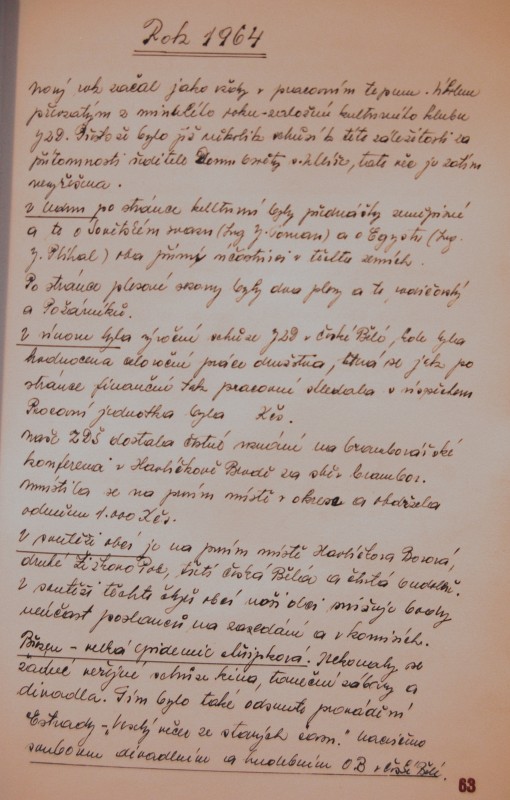 Rok 1964
Nový rok začal jako vždy v pracovním tempu. Úkolem
převzatým z minulého roku - založení kulturního klubu
JZD. Přesto že bylo již několik schůzí k této záležitosti za
přítomnosti ředitele Domu osvěty s. Klíče, tato věc je zatím
nevyřešena.
V lednu po stránce kulturní byly přednášky zeměpisné
a to o Sovětském svazu (Ing. J. Toman) a o Egyptu (Ing.
J. Plíhal) oba přímí účastníci v těchto zemích.
Po stránce plesové sezony byly dva plesy a to, rodičovský
a Požárníků.
V únoru byla výroční schůze JZD v České Bělé, kde byla
hodnocena celoroční práce družstva, která se jak po
stránce finanční tak pracovní shledala s úspěchem
Pracovní jednotka byla Kčs.
Naše ZDŠ dostala čestné uznání na bramborářské
konferenci v Havlíčkově Brodě za sběr brambor.
Umístila se na prvním místě v okrese a obdržela
odměnu 1.000 Kčs.
V soutěži obcí je na prvním místě Havlíčkova Borová,
druhé Žižkovo Pole, třetí Česká Bělá a čtvrtá
V soutěži těchto obcí naši obci snižuje body
neúčast poslanců na zasedání a v komisích.
Březen - velká epidemie chřipková. Nekonaly se
žádné veřejné schůze kina, taneční zábavy a
divadla. Tím bylo také odsunuto provádění
"Estrády - "Veselý večer ze starých časů." nacvičeno
souborem divadelním a hudebním OB v České Bělé.
63